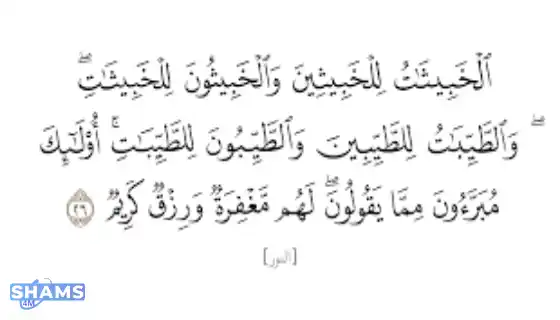 ٱلْخَبِيثَٰتُ لِلْخَبِيثِينَ وَٱلْخَبِيثُونَ لِلْخَبِيثَٰتِ ۖ
وَٱلطَّيِّبَٰتُ لِلطَّيِّبِينَ وَٱلطَّيِّبُونَ لِلطَّيِّبَٰتِ ۚ أُو۟لَٰٓئِكَ
مُبَرَّءُونَ مِمَّا يَقُولُونَ ۖ لَهُم مَّغْفِرَةٌ وَرِزْقٌ كَرِيمٌ ٢٦
[النور]
SHAMS
4M